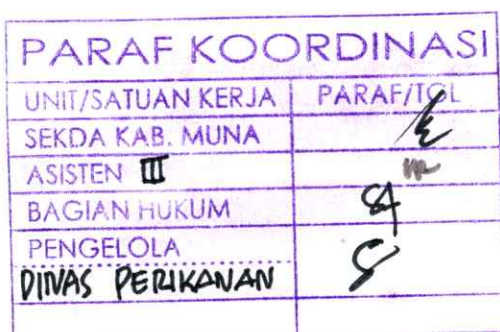 PARAF KOORDINASI
UNIT/SATUAN KERJA PARAF/TGL
SEKDA KAB. MUNA
ASISTEN III
BAGIAN HUKUM
PENGELOLA
DINAS PERIKANAN